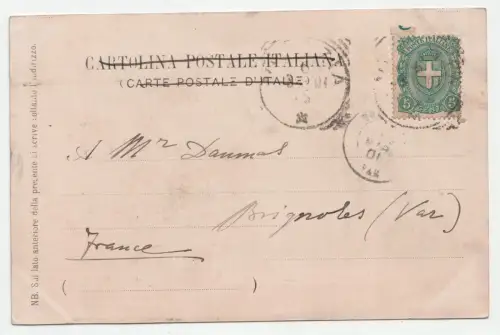 CARTOLINA POSTALE ITALIANA
(CARTE POSTALE D'ITALIE)
A Mr Daumas
Brignoles (Var)
France
( )
NB. Sul lato anteriore della presente si scrive soltanto l'indirizzo.
5 5
01
VAR